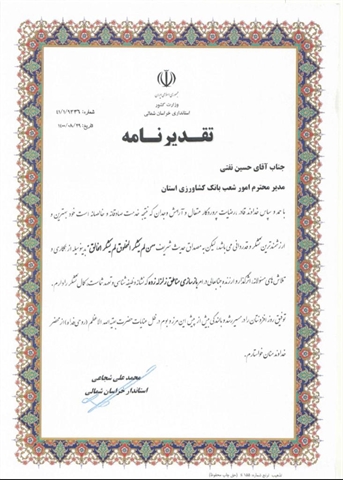 جمهوری اسلامی ایران
وزارت کشور
استانداری خراسان شمالی
شماره: ۵۱/۱/۹۲۳۶
تاریخ: ۱۴۰۰/۰۸/۲۹
تقدیرنامه
جناب آقای حسین نقتی
مدیر محترم امور شعب بانک کشاورزی استان
با حمد و سپاس خداوند قادر، رضایت پروردگار متعال و آرامش وجدان که نتیجه خدمت صادقانه و خالصانه است خود بهترین و
ارزشمندترین تشکر و قدردانی می باشد، لیکن به مصداق حدیث شریف من لم یشکر المخلوق لم یشکر الخالق بدینوسیله از همکاری و
تلاش های مسئولانه، اثرگذار و ارزنده جنابعالی در امر بازسازی مناطق زلزله زده که نشانه وظیفه شناسی و تعهد شماست کمال تشکر را دارم.
توفیق روز افزونتان را در مسیر رشد و بالندگی بیش از پیش این مرز و بوم در ظل عنایات حضرت بقیه الله الاعظم (روحی فداه) از محضر
خداوند منان خواستارم.
محمد علی شجاعی
استاندار خراسان شمالی